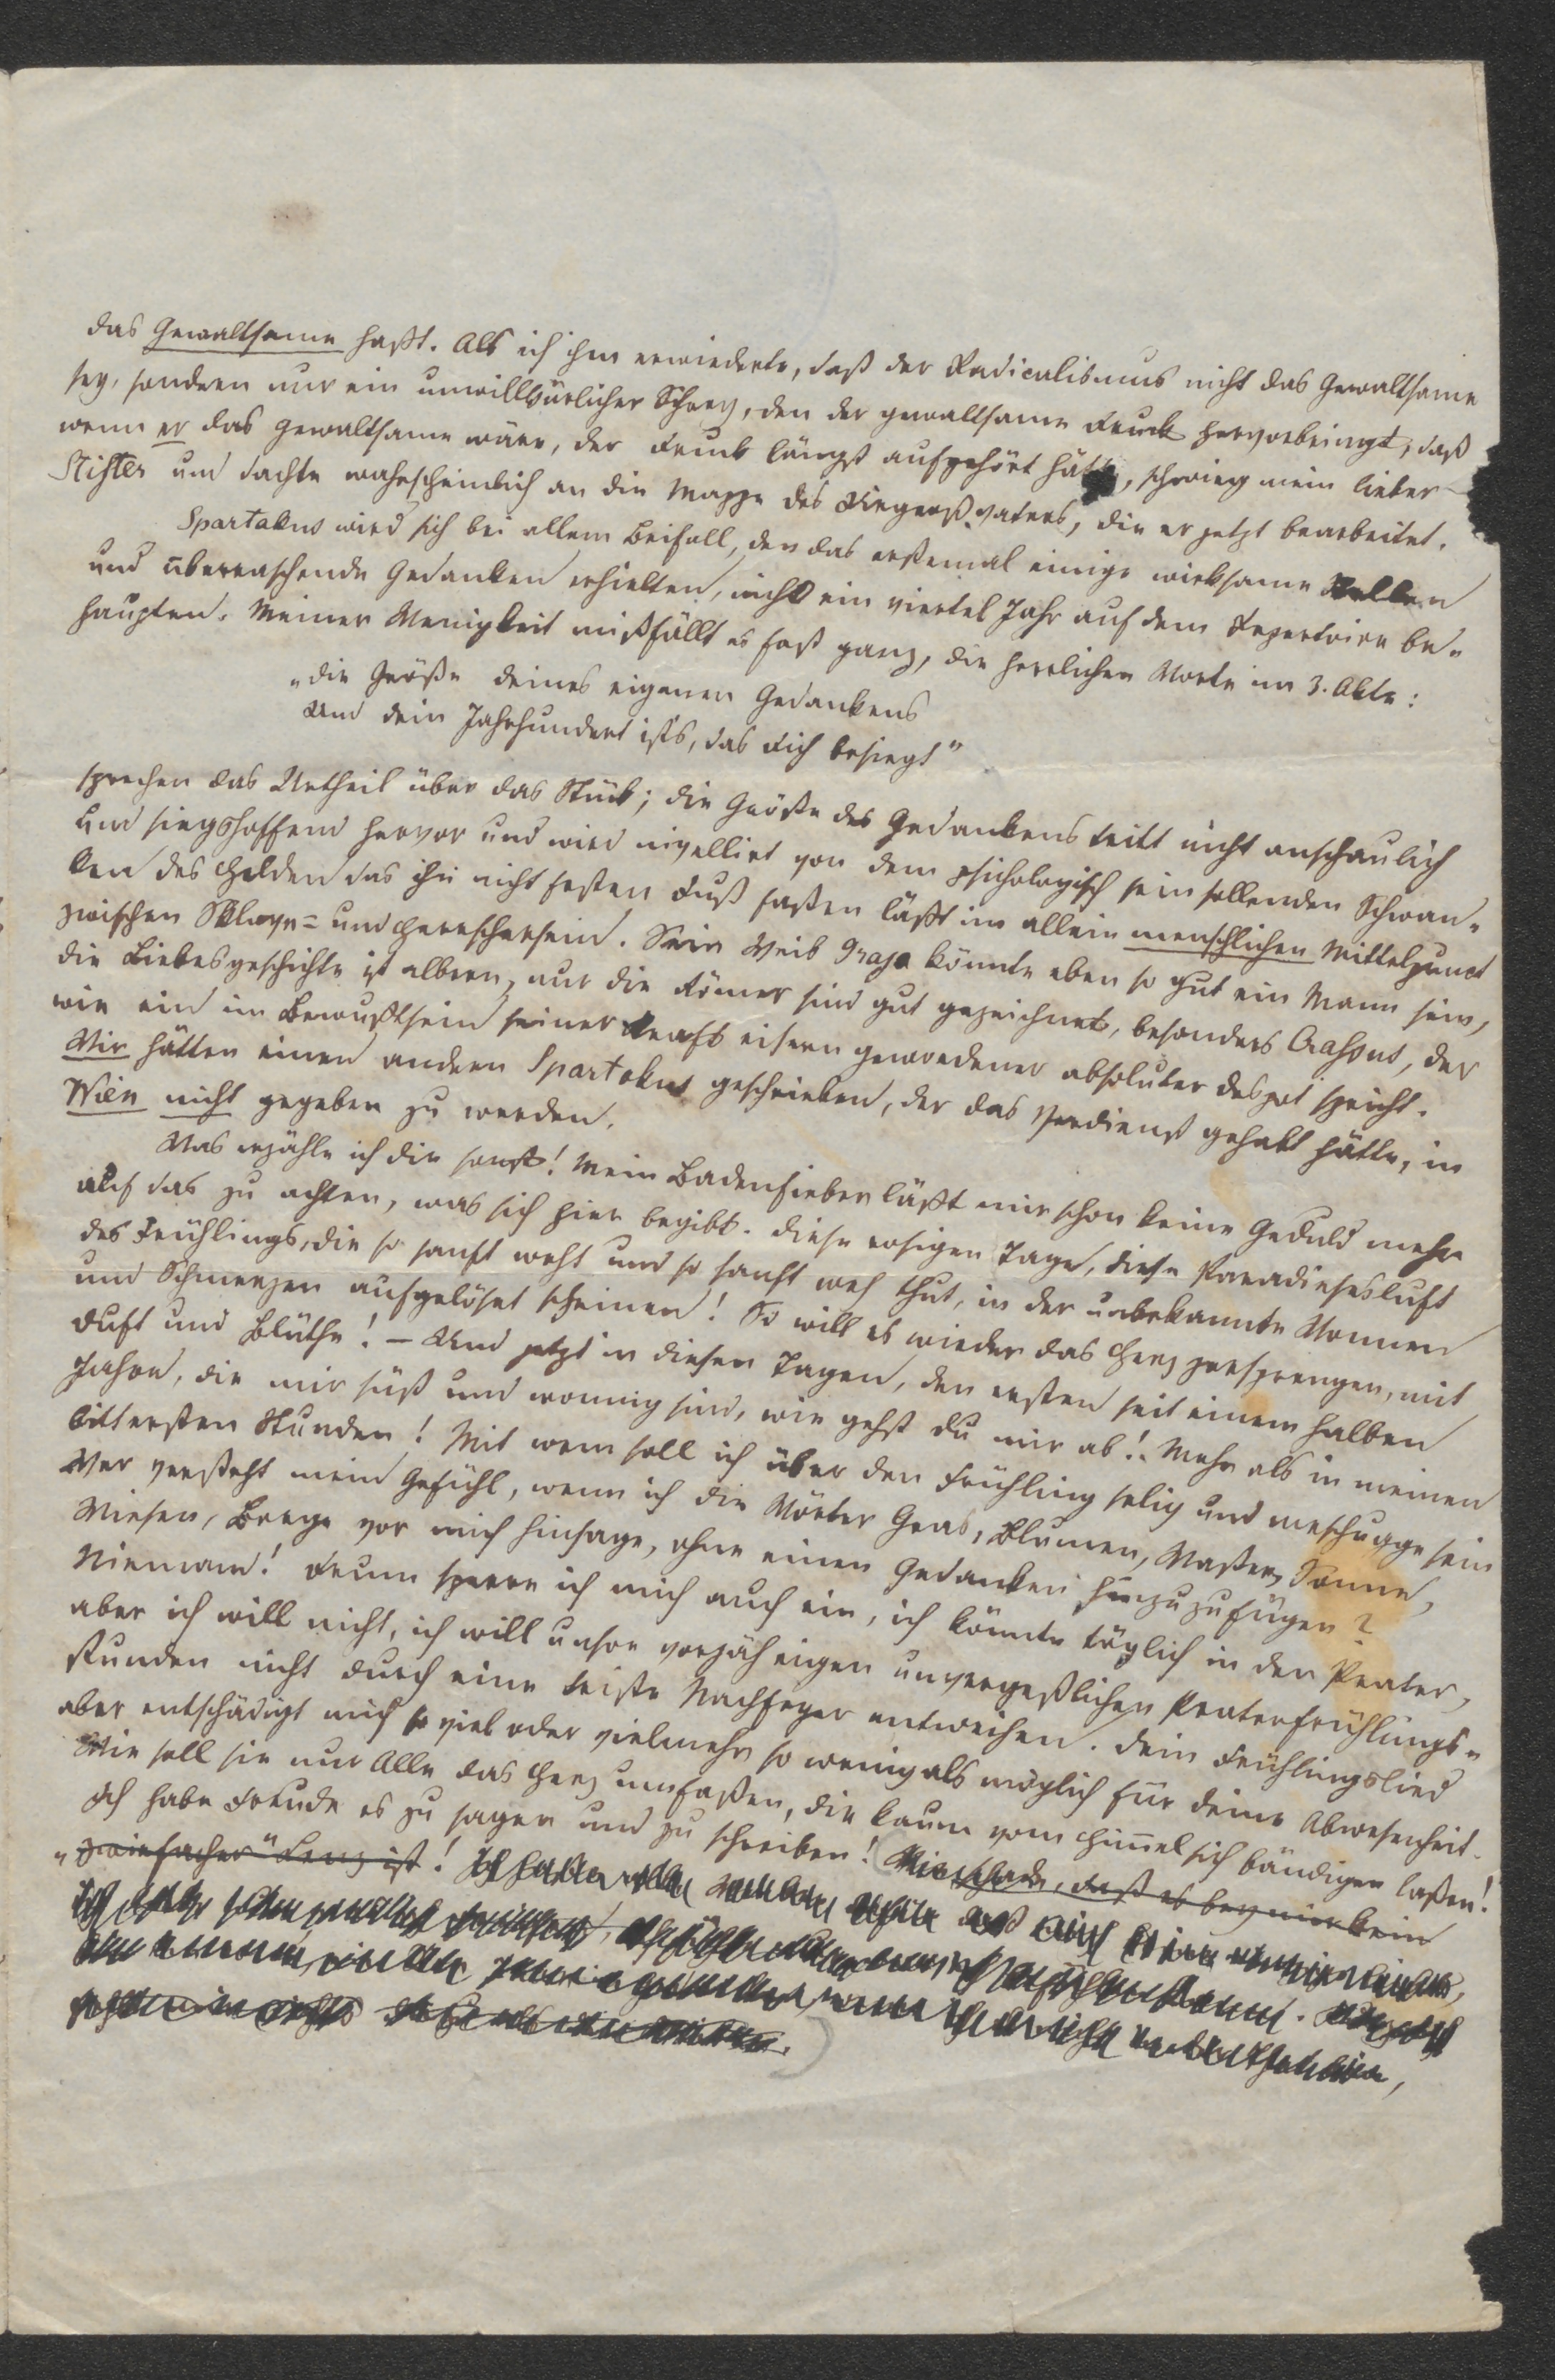 das Gewaltsame haßt. Als ich ihm erwiederte, daß der Radicalismus nicht das Gewaltsame
sey, sondern nur ein unwillkürlicher Schrey, den der gewaltsame Druck hervorbringt; daß
wenn er das gewaltsame wäre, der Druck längst aufgehört hätte, schwieg mein lieber
Stifter und dachte wahrscheinlich an die Mappe des Urgroßvaters, die er jetzt bearbeitet.
Spartakus wird sich bei allem Beifall, den das erstemal einige wirksame Stellen
und überraschende Gedanken erhielten, nicht ein viertel Jahr auf dem Repertoire be-
haupten. Meiner Wenigkeit mißfällt es fast ganz, die herrlichen Worte im 3. Akte:
„die Größe deines eigenen Gedankens
Und dein Jahrhundert ists, das dich besiegt"
sprechen das Urtheil über das Stück; die Größe des Gedankens tritt nicht anschaulich
und siegshoffend hervor und wird nivellirt von dem psichologisch sein sollenden Schwan-
ken des Helden das ihn nicht festen Fuß faßen läßt im allein menschlichen Mittelpunct
zwischen Sklave= und Herrschersein. Sein Weib Graja könnte eben so gut ein Mann sein,
die Liebesgeschichte ist albern, nur die Römer sind gut gezeichnet, besonders Crassus, der
wie ein im Bewußtsein seiner Kraft eisern gewordener absoluter Despot spricht.
Wir hätten einen andern Spartakus geschrieben, der das Verdienst gehabt hätte, in
Wien nicht gegeben zu werden.
Was erzähle ich dir sonst! Mein Badenfieber läßt mir schon keine Geduld mehr
auf das zu achten, was sich hier begibt. Diese rosigen Tage, diese Paradiesesluft
des Frühlings, die so sanft weht und so sanft weh thut, in der unbekannte Wonnen
und Schmerzen aufgelöset scheinen! So will es wieder das Herz zersprengen, mit
Duft und Blüthe! – Und jetzt in diesen Tagen, den ersten seit einem halben
Jahre, die mir süß und wonnig sind, wie gehst du mir ab! Mehr als in meinen
bittersten Stunden! Mit wem soll ich über den Frühling selig und meschugge sein
Wer versteht mein Gefühl, wenn ich die Wörter Gras, Blumen, Waßer, Sonne,
Wiesen, Berge vor mich hinsage, ohne einen Gedanken hinzuzufügen?
Niemand! Drum sperre ich mich auch ein, ich könnte täglich in den Prater,
aber ich will nicht, ich will unsre vorjährigen unvergeßlichen Praterfrühlings-
stunden nicht durch eine triste Nachfeyer entweihen. Dein Frühlingslied
aber entschädigt mich so viel oder vielmehr so wenig als möglich für deine Abwesenheit.
Wie soll sie nur Alle das Herz umfaßen, die kaum vom Himmel sich bändigen laßen!
Ich habe Freude es zu sagen und zu schreiben! (Wie schade, daß es bey mir kein
„zwiefacher" Lenz ist!